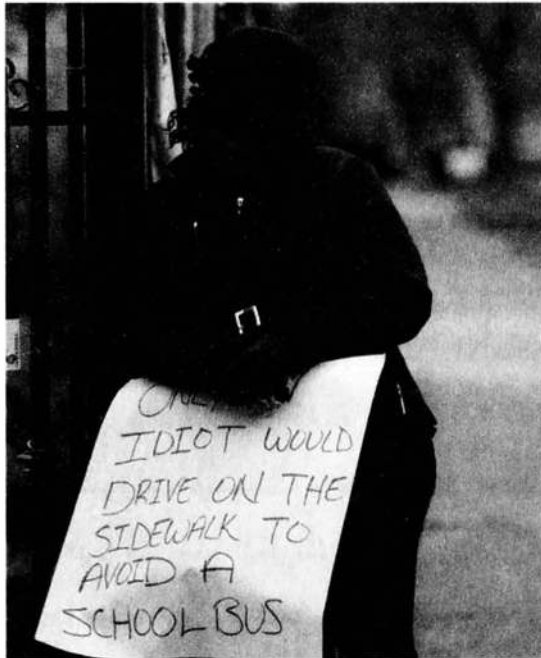 ONLY
IDIOT WOULD
DRIVE ON THE
SIDEWALK TO
AVOID A
SCHOOL BUS